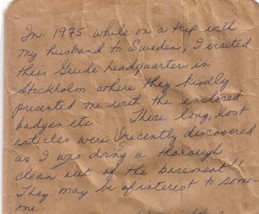 In 1975 while on a trip with
my husband to Sweden, I visited
their Guide headquarters in
Stockholm where they kindly
presented me with the enclosed
badges etc These long, lost
articles were recently discovered
as I was doing a thorough
clean out of the basement!!
They may be of interest to some-
one.